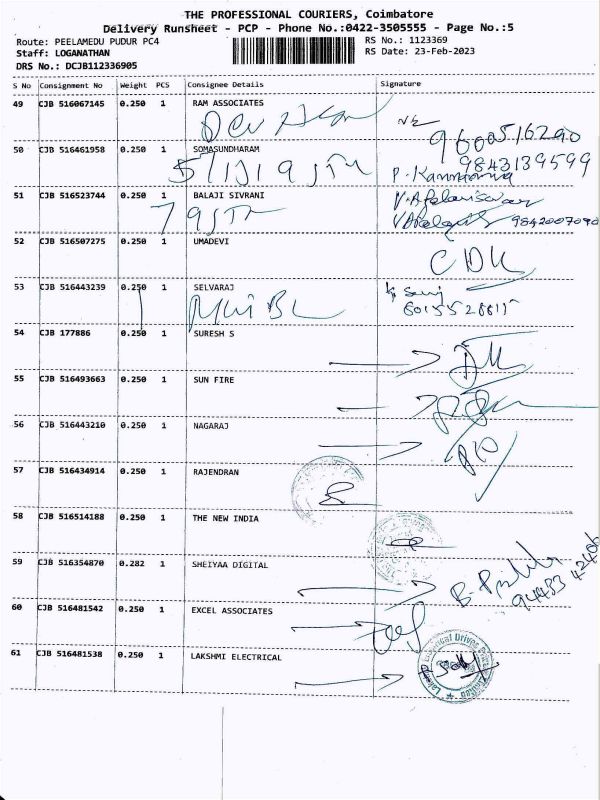 THE PROFESSIONAL COURIERS, Coimbatore
Delivery Runsheet - PCP - Phone No.:0422-3505555 - Page No.:5
Route: PEELAMEDU PUDUR PC4
RS No.: 1123369
Staff: LOGANATHAN
RS Date: 23-Feb-2023
DRS No.: DCJB112336905
S No Consignment No Weight PCS Consignee Details Signature
49 CJB 516067145 0.250 1 RAM ASSOCIATES
9600516290
50 CJB 516461958 0.250 1 SOMASUNDHARAM
9843139599
51 CJB 516523744 0.250 1 BALAJI SIVRANI
9842007090
52 CJB 516507275 0.250 1 UMADEVI
CDK
53 CJB 516443239 0.250 1 SELVARAJ
54 CJB 177886 0.250 1 SURESH S
55 CJB 516493663 0.250 1 SUN FIRE
56 CJB 516443210 0.250 1 NAGARAJ
57 CJB 516434914 0.250 1 RAJENDRAN
58 CJB 516514188 0.250 1 THE NEW INDIA
59 CJB 516354870 0.282 1 SHEIYAA DIGITAL
60 CJB 516481542 0.250 1 EXCEL ASSOCIATES
61 CJB 516481538 0.250 1 LAKSHMI ELECTRICAL